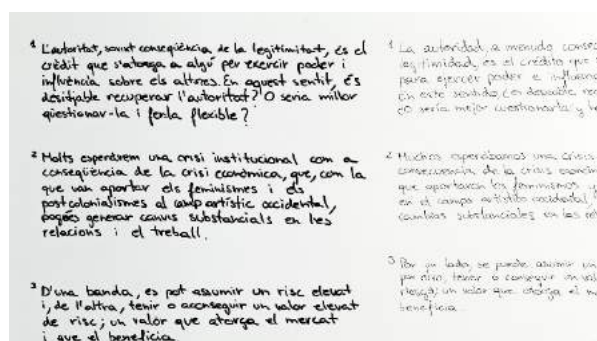 ¹ L'autoritat, sovint conseqüència de la legitimitat, és el
crèdit que s'atorga a algú per exercir poder i
influència sobre els altres. En aquest sentit, és
desitjable recuperar l'autoritat? O seria millor
qüestionar-la i ferla flexible?
² Molts esperàvem una crisi institucional com a
conseqüència de la crisi econòmica, que, com la
que van aportar els feminismes i els
postcolonialismes al camp artístic occidental,
pogués generar canvis substancials en les
relacions i el treball.
³ D'una banda, es pot assumir un risc elevat
i, de l'altra, tenir o aconseguir un valor elevat
de risc; un valor que atorga el mercat
i que el beneficia
¹ La autoridad, a menudo consec
legitimidad, es el crédito que
para ejercer poder e influenc
En este sentido, ¿es deseable rec
¿O sería mejor cuestionarla y h
² Muchos esperábamos una crisis
consecuencia de la crisis económ
que aportaron los feminismos y
en el campo artístico occidental,
cambios substanciales en las rel
³ Por un lado, se puede asumir un
por otro, tener o conseguir un val
riesgo; un valor que otorga el m
beneficia